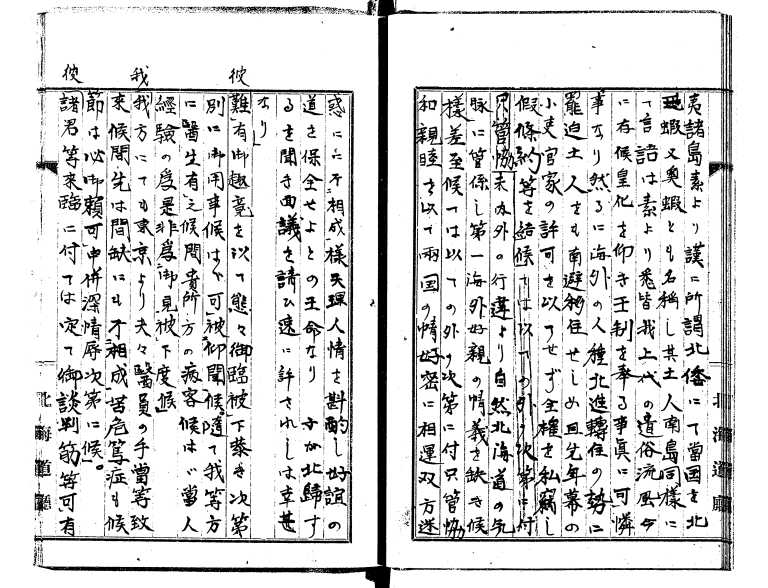 夷諸島素より漢に所謂北倭にて當国を北
蝦又奥蝦とも名稱し其土人南島同様に
て言語は素より悉皆我上代の遺俗流風今
に存候皇化を仰き王制を奉る事真に可憐
事なり然るに海外の人種北進轉住の勢に
罷迫土人をも南避移住せしめ且先年幕の
小吏官家の許可を以てせず全權を私竊し
假條約等を結候ては以ての外の次第に付
只管協未如外の行違より自然北海道の気
脉に管係し第一海外好親の情義を缺き候
様差至候ては以ての外の次第に付只管協
和親睦を以て両国の情好密に相運双方迷
惑にに不相成様天理人情を斟酌し好誼の
道を保全せよとの王命なり 北歸す
るを聞き面議を請ひ速に許されしは幸甚
なり
彼
難有御趣意を以て態々御臨被下恭き次第
別に御用事候はゞ可被仰聞候隨て我等方
に醫生有之候間貴所方の病客候はゞ當人
經驗の為是非為御見被下度候
我
我方にても東京より夫々醫員の手當等致
來候間先は間缺にも不相成苦危篤症も候
節は必御賴可申併深情辱次第に候。
彼
諸君等来臨に付ては定て御談判筋等可有
北海道廳
北海道廳